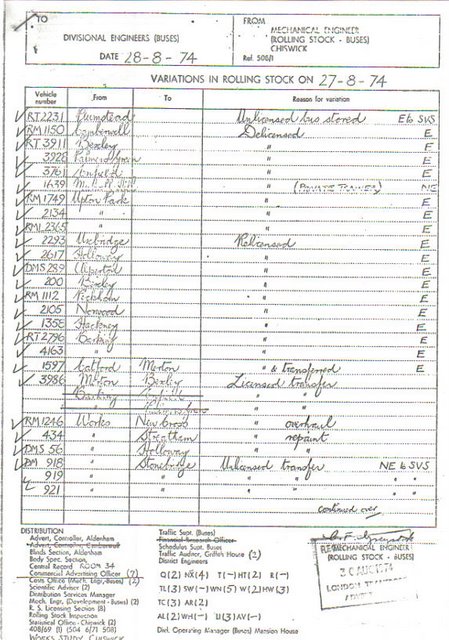 TO
DIVISIONAL ENGINEERS (BUSES)
DATE 28-8-74
FROM
MECHANICAL ENGINEER
(ROLLING STOCK - BUSES)
CHISWICK
Ref. 508/1
VARIATIONS IN ROLLING STOCK ON 27-8-74
Vehicle number From To Reason for variation
RT2231 Plumstead Unlicensed bus stored E to SVS
RM1150 Camberwell Delicensed E
RT3911 Bexley " E
3928 Palmers Green " E
3761 Enfield " E
1639 " (PRIVATE TRAINER) NE
RM1749 Upton Park " E
2134 " " E
RML2365 " " E
2293 Uxbridge Relicensed E
2617 Holloway " E
DMS289 Alperton " E
200 Bexley " E
RM1112 Peckham " E
2105 Norwood " E
1358 Hackney " E
RT2796 Barking " E
4163 " " E
1597 Catford Merton " & transferred E
3986 Merton Bexley Licensed transfer
Barking Enfield " "
" Palmers Green " "
RM1246 Works New Cross " overhaul
434 " Streatham " repaint
DMS 56 " Holloway " "
DM 918 " Stonebridge Unlicensed transfer NE to SVS
919 " " " " " "
921 " " " " " "
continued over
DISTRIBUTION
Advert, Controller, Aldenham
Blinds Section, Aldenham
Body Spec. Section
Central Record ROOM 34
Commercial Advertising Officer (7)
Costs Office (Mech. Engr, Buses) (2)
Scientific Adviser (2)
Distribution Services Manager
Mech. Engr. (Development - Buses) (2)
R. S. Licensing Section (8)
Rolling Stock Inspection
Statistical Office - CHISWICK (2)
408/69 (1) (504 6/71 508)
WORKS STUDY CHISWICK
Traffic Supt. (Buses)
Financial Research Officer
Schedules Supt. Buses
Traffic Auditor, Griffith House (2)
District Engineers
Q(2) NX(4) T(-) HT(2) R(-)
TL(3) SW(-) WN(5) W(2) HW(3)
TC(3) AR(2)
AL(2) WH(-) U(3) AV(-)
Divl. Operating Manager (Buses) Mansion House
MECHANICAL ENGINEER
(ROLLING STOCK - BUSES)
30 AUG 1974
LONDON TRANSPORT